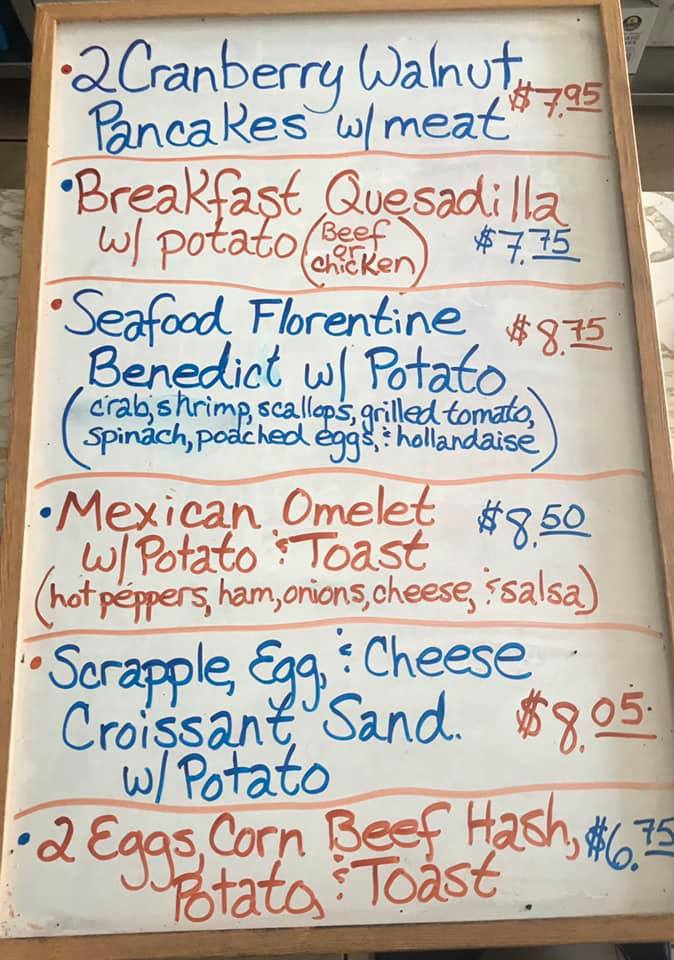 • 2 Cranberry Walnut
Pancakes w/ meat $7.95
• Breakfast Quesadilla
w/ potato (Beef or chicken) $7.75
• Seafood Florentine $8.75
Benedict w/ Potato
(crab, shrimp, scallops, grilled tomato,
spinach, poached eggs, & hollandaise)
• Mexican Omelet $8.50
w/ Potato & Toast
(hot peppers, ham, onions, cheese, & salsa)
• Scrapple, Egg, & Cheese
Croissant Sand. $8.05
w/ Potato
• 2 Eggs, Corn Beef Hash, $6.75
Potato, & Toast